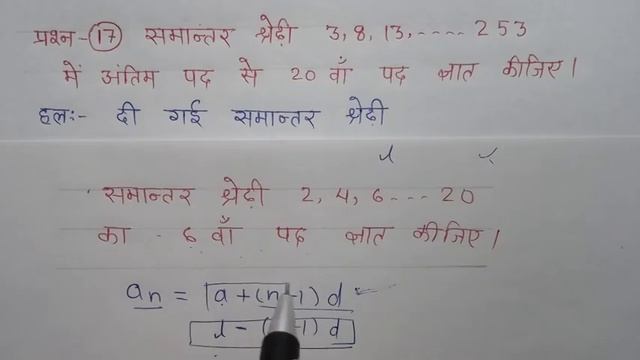 प्रश्न-17 समान्तर श्रेढ़ी 3, 8, 13, ..... 253
में अंतिम पद से 20 वाँ पद ज्ञात कीजिए।
हलः- दी गई समान्तर श्रेढ़ी
समान्तर श्रेढ़ी 2, 4, 6 --- 20
का 6 वाँ पद ज्ञात कीजिए।
an = a + (n-1) d
l - ( -1) d